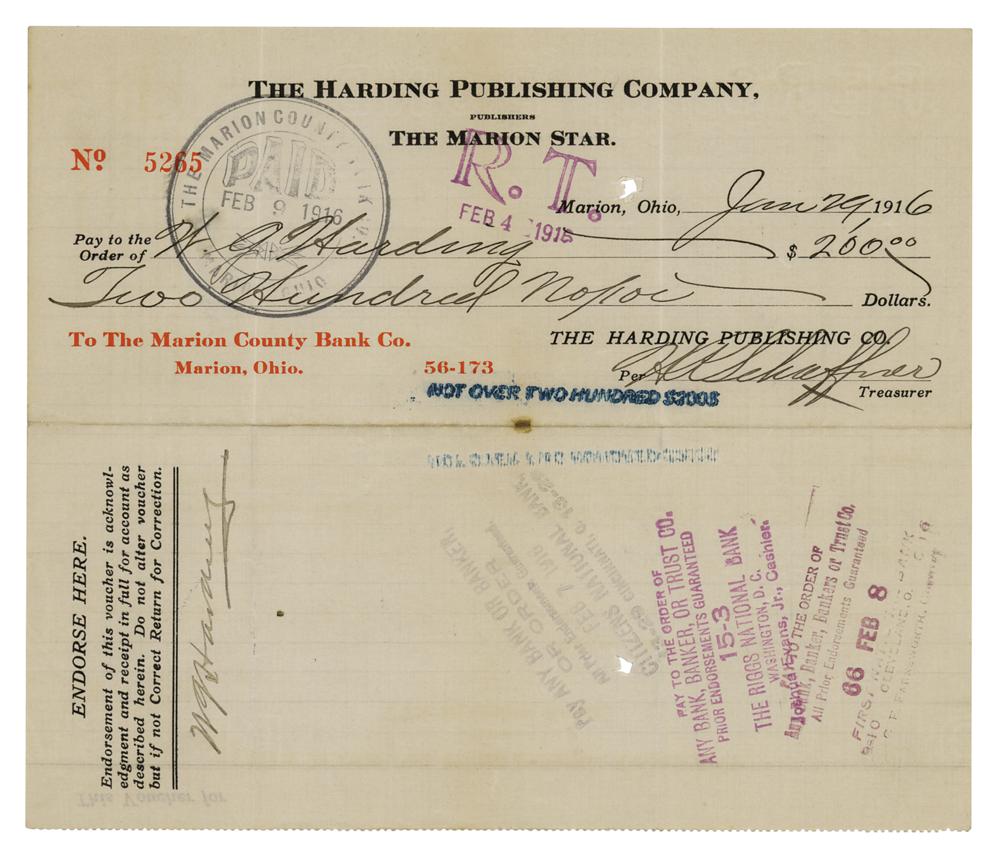 THE HARDING PUBLISHING COMPANY,
PUBLISHERS
THE MARION STAR.
No 5265
THE MARION COUNTY
PAID
FEB 9 1916
MARION OHIO
R. T.
FEB 4 1916
Marion, Ohio, Jan 29, 1916
Pay to the Order of W. G. Harding $ 200 00
Two Hundred No/00 Dollars.
To The Marion County Bank Co.
Marion, Ohio.
56-173
THE HARDING PUBLISHING CO.
Per Schaffner
Treasurer
NOT OVER TWO HUNDRED $200$
ENDORSE HERE.
Endorsement of this voucher is acknowl-
edgment and receipt in full for account as
described herein. Do not alter voucher
but if not Correct Return for Correction.
W G Harding
PAY ANY BANK OR BANKER
OR ORDER
FEB 7
CITIZENS NATIONAL BANK
CINCINNATI, O.
PAY TO THE ORDER OF
ANY BANK, BANKER, OR TRUST CO.
PRIOR ENDORSEMENTS GUARANTEED
15-3
THE RIGGS NATIONAL BANK
WASHINGTON, D. C.
Evans, Jr., Cashier.
THE ORDER OF
Bank, Banker, Bankers or Trust Co.
All Prior Endorsements Guaranteed
66 FEB 8
FIRST BANK
CLEVELAND, O.
This Voucher for